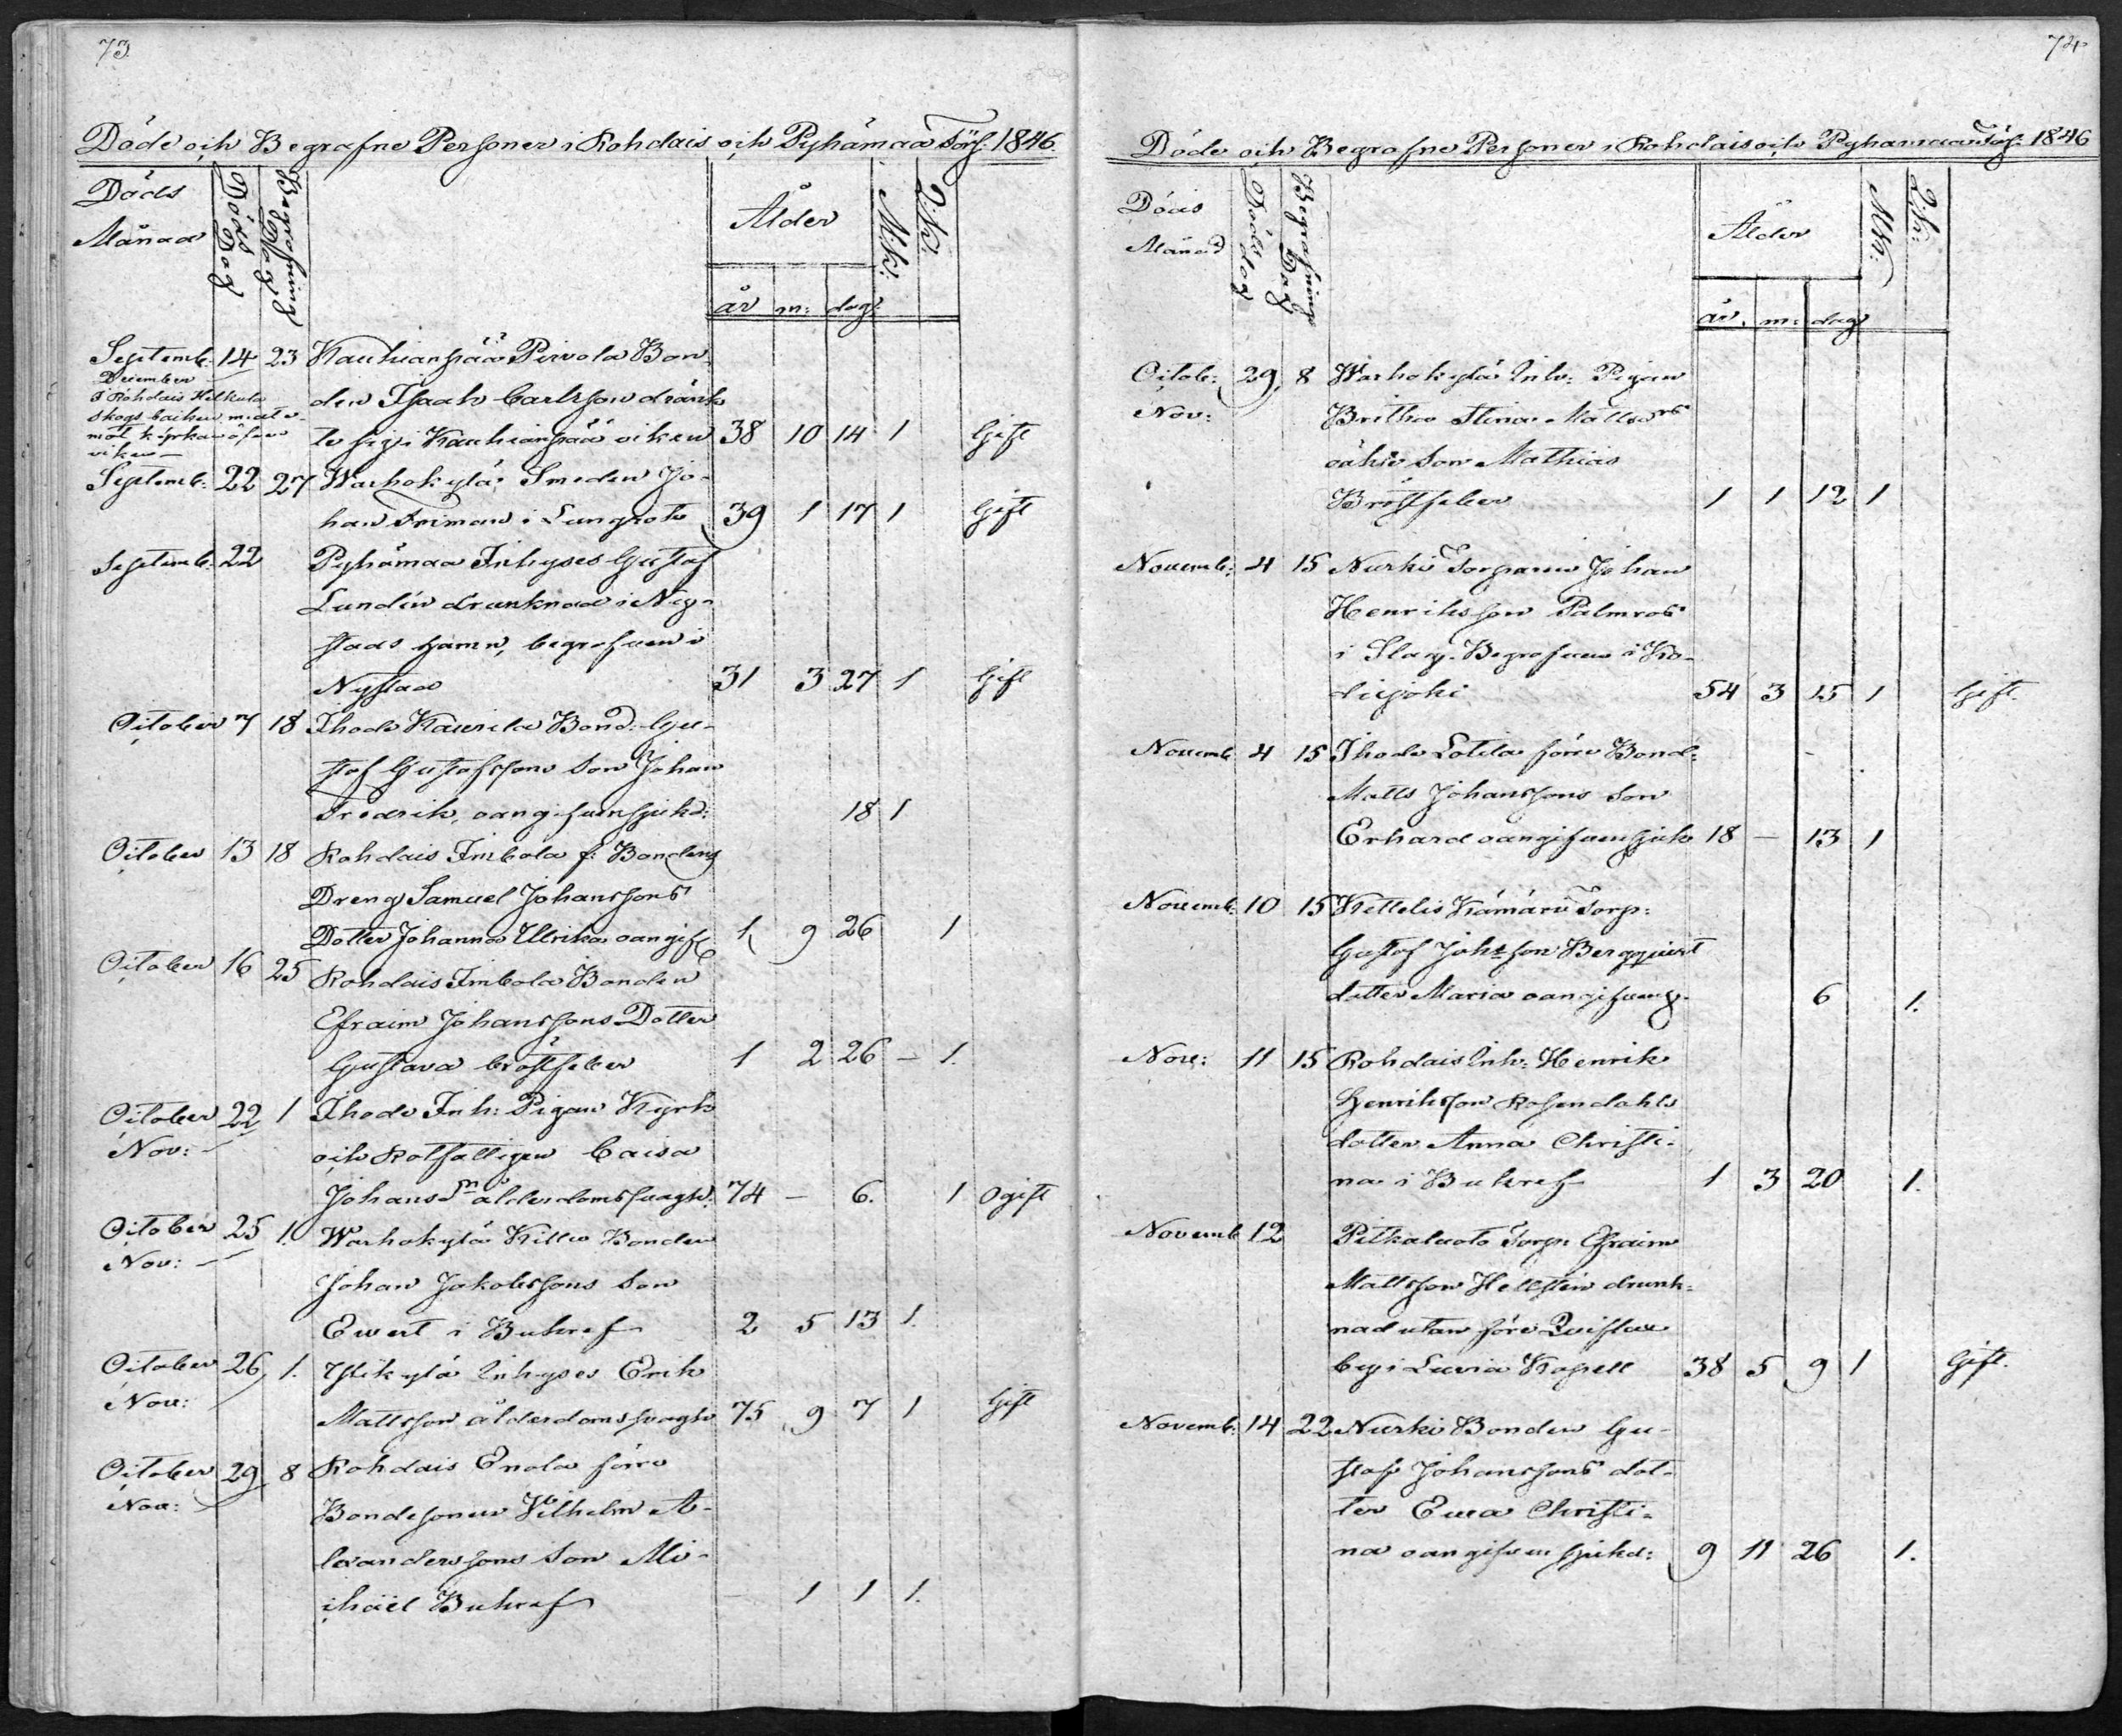 73
Döde och Begrafne Personer i Rohdais och Pyhämaa Förs: 1846
Döds Månad
Döds Dag
Begrafning Dag
Ålder
M:k:
Q:k:
år m: dag:
Septemb: 14 23 Kauhianpää Pirvola Bon
December
i Rohdais
Skogsbacken
mot kyrka
viken
den Isaak Carlsson dränk
te sig i Kauhianpää viken 38 10 14 1 Gift
Septemb: 22 27 Warhokylä Smeden Jo-
han Friman i Lungsot 39 1 17 1 Gift
Septemb: 22 Pyhämaa Inhyses Gustaf
Lundén drunknad i Ny-
stads hamn, begrafven i
Nystad 31 3 27 1 Gift
October 7 18 Ihode Kaurila Bond: Gu-
staf Gustafssons Son Johan
Fredrik, oangifven sjukd: 18 1
October 13 18 Rohdais Imbola f: Bondens
Dreng Samuel Johanssons
Dotter Johanna Ulrika oangift 1 9 26 1
October 16 25 Rohdais Imbola Bonden
Efraim Johanssons Dotter
Gustava bröstfeber 1 2 26 – 1.
October 22 1 Ihode Inh: Pigan Kyrk
Nov: –
och Rotfattigen Caisa
Johansdr ålderdomssvagh: 74 – 6. 1 Ogift
October 25 1. Warhokylä Killu Bonden
Nov: –
Johan Jakobssons Son
Evert i Bukref 2 5 13 1.
October 26 1. Ylikylä Inhyses Erik
Nov:
Mattsson ålderdomssvaghet 75 9 7 1 Gift
October 29 8 Rohdais Enola förre
Nov:
Bondesonen Vilhelm A-
lexanderssons Son Mi-
chäel Bukref – 1 1 1.
74
Döde och Begrafne Personer i Rohdais och Pyhämaa Förs: 1846
Döds Månad
Döds dag
Begrafnings Dag
Ålder
M:k:
Q:k:
år. m: dag
Octob: 29 8 Warhokylä Inh: Pigan
Nov:
Britha Stina Mattsdrs
oäkte Son Mathias
Bröstfeber 1 1 12 1
Novemb: 4 15 Nurki Torparen Johan
Henriksson Palmros
i Slag. Begrafven i Ko-
disjoki 54 3 15 1 Gift.
Novemb 4 15 Ihode Lotila förre Bond:
Matts Johanssons Son
Erhard oangifven sjuk 18 – 13 1
Novemb: 10 15 Kettelis Kämäri Torp:
Gustaf Johsson Bergqvist
dotter Maria oangifven s. 6 1.
Nov: 11 15 Rohdais Inh: Henrik
Henriksson Rosendahls
dotter Anna Christi-
na i Bukref 1 3 20 1.
Novemb 12 Pitkaluoto Torp: Efraim
Mattsson Hellstén drunk-
nad utan före
by i Luvia Kapell 38 5 9 1 Gift.
Novemb: 14 22 Nurki Bonden Gu-
staf Johanssons dot-
ter Eva Christi-
na oangifven sjukd: 9 11 26 1.